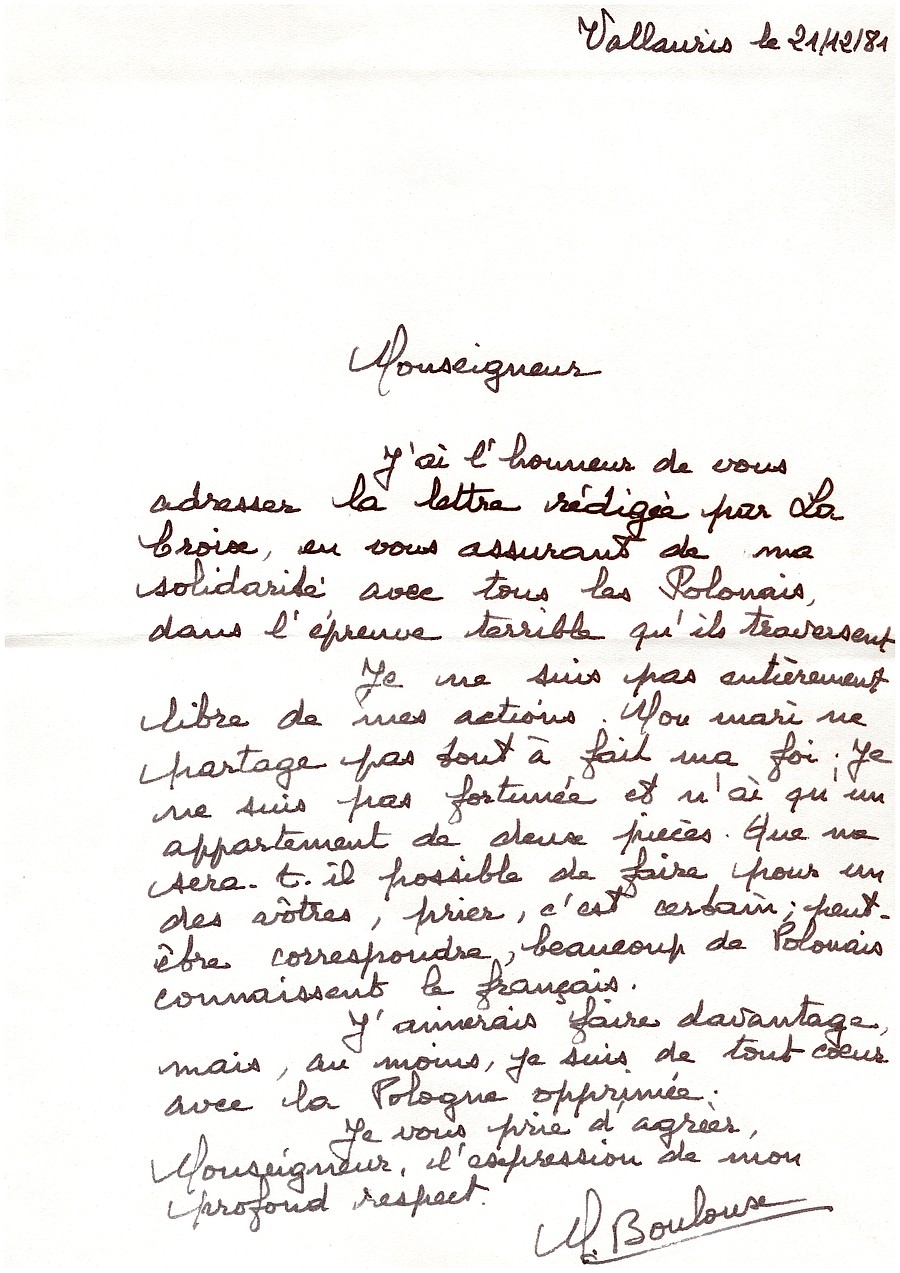 Vallauris le 21/12/81
Monseigneur
J'ai l'honneur de vous
adresser la lettre rédigée par La
Croix, en vous assurant de ma
solidarité avec tous les Polonais,
dans l'épreuve terrible qu'ils traversent
Je ne suis pas entièrement
libre de mes actions. Mon mari ne
partage pas tout à fait ma foi ; je
ne suis pas fortunée et n'ai qu'un
appartement de deux pièces. Que me
sera-t-il possible de faire pour un
des vôtres, prier, c'est certain ; peut-
être correspondre, beaucoup de Polonais
connaissent le français.
J'aimerais faire davantage,
mais, au moins, je suis de tout cœur
avec la Pologne opprimée.
Je vous prie d'agréer,
Monseigneur, l'expression de mon
profond respect.
M. Boulouse